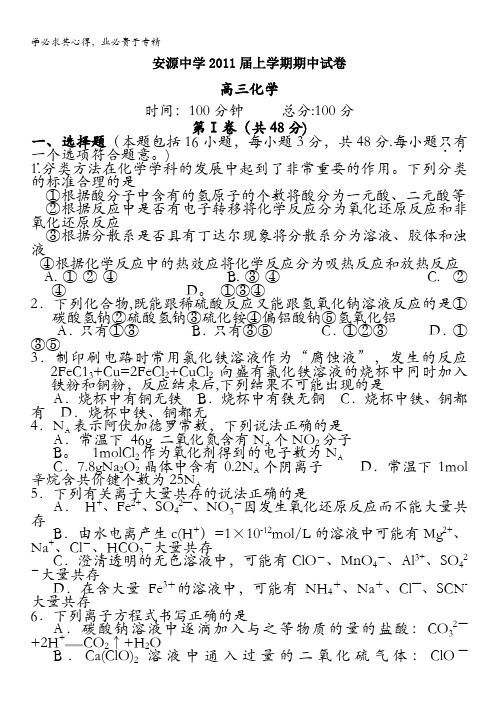 学必求其心得，业必贵于专精
安源中学2011届上学期期中试卷
高三化学
时间：100分钟 总分:100分
第Ⅰ卷（共48分)
一、选择题（本题包括16小题，每小题3分，共48分.每小题只有
一个选项符合题意。）
1.分类方法在化学学科的发展中起到了非常重要的作用。下列分类
的标准合理的是
①根据酸分子中含有的氢原子的个数将酸分为一元酸、二元酸等
②根据反应中是否有电子转移将化学反应分为氧化还原反应和非
氧化还原反应
③根据分散系是否具有丁达尔现象将分散系分为溶液、胶体和浊
液
④根据化学反应中的热效应将化学反应分为吸热反应和放热反应
A. ① ② ④ B. ③ ④ C. ②
④ D。 ①③④
2．下列化合物,既能跟稀硫酸反应又能跟氢氧化钠溶液反应的是①
碳酸氢钠②硫酸氢钠③硫化铵④偏铝酸钠⑤氢氧化铝
A．只有①③ B．只有③⑤ C．①②③ D．①
③⑤
3．制印刷电路时常用氯化铁溶液作为“腐蚀液”，发生的反应
2FeCl3+Cu=2FeCl2+CuCl2 向盛有氯化铁溶液的烧杯中同时加入
铁粉和铜粉，反应结束后,下列结果不可能出现的是
A．烧杯中有铜无铁 B．烧杯中有铁无铜 C．烧杯中铁、铜都
有 D．烧杯中铁、铜都无
4．NA表示阿伏加德罗常数，下列说法正确的是
A．常温下 46g 二氧化氮含有NA个NO2分子
B。 1molCl2作为氧化剂得到的电子数为NA
C．7.8gNa2O2晶体中含有 0.2NA个阴离子 D．常温下1mol
辛烷含共价键个数为25NA
5．下列有关离子大量共存的说法正确的是
A． H+、Fe2+、SO42—、NO3－因发生氧化还原反应而不能大量共
存
B．由水电离产生c(H+）=1×10-12mol/L的溶液中可能有Mg2+、
Na+、Cl－、HCO3－大量共存
C．澄清透明的无色溶液中，可能有ClO－、MnO4－、Al3+、SO42
－大量共存
D．在含大量Fe3＋的溶液中，可能有NH4＋、Na＋、Cl—、SCN-
大量共存
6．下列离子方程式书写正确的是
A．碳酸钠溶液中逐滴加入与之等物质的量的盐酸：CO32—
+2H+══CO2↑+H2O
B．Ca(ClO)2溶液中通入过量的二氧化硫气体：ClO—